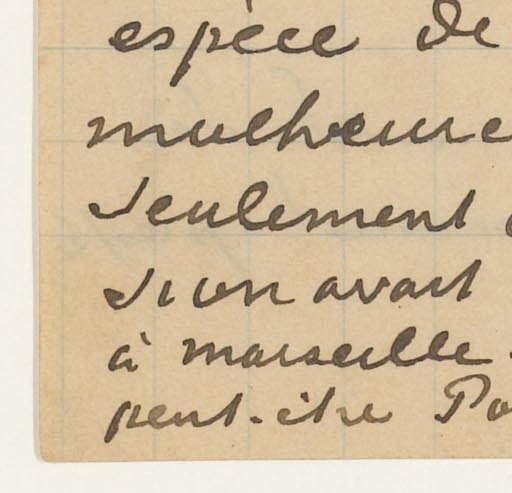 espèce de
mulheure
seulement
si on avait
à marseille
peut-être Pa